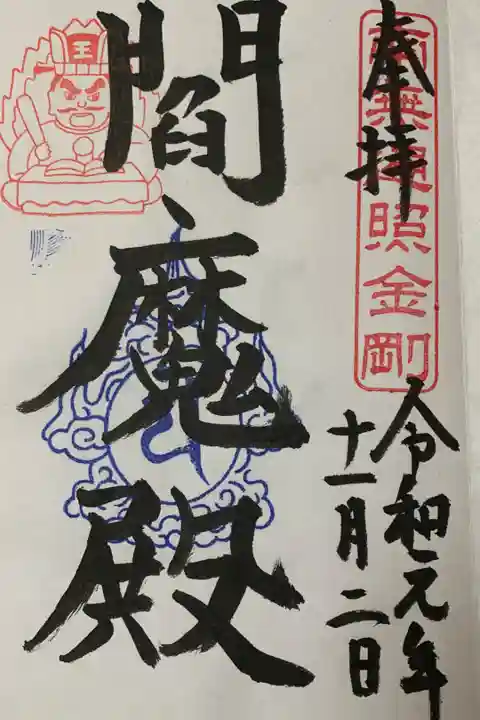 奉拝
南無遍照金剛
令和元年
十一月二日
閻魔殿
王